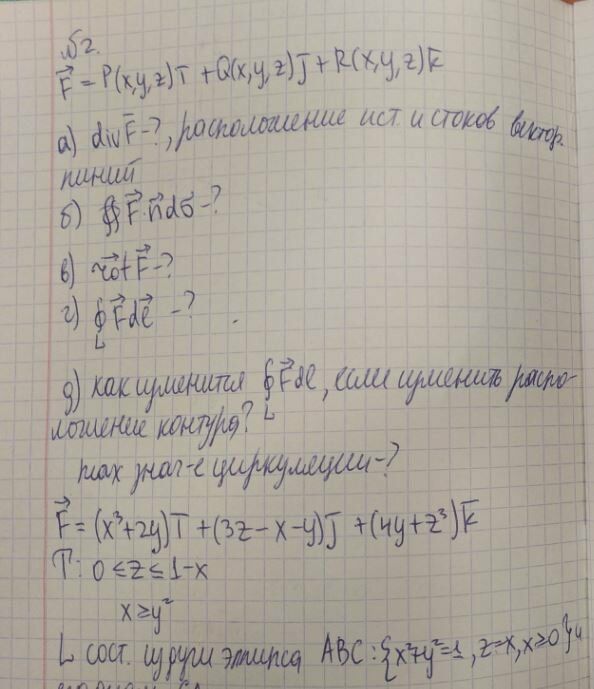 №2.
F⃗ = P(x,y,z)i̅ + Q(x,y,z)j̅ + R(x,y,z)k̅
а) div F̅ -?, расположение ист. и стоков вектор.
линий
б) ∯ F⃗·n⃗dσ -?
в) rot F⃗ -?
г) ∮ F⃗dl⃗ -?
L
д) как изменится ∮ F⃗dl, если изменить распо-
L
ложение контура?
max знач-е циркуляции -?
F⃗ = (x³+2y)i̅ + (3z-x-y)j̅ + (4y+z³)k̅
T: 0 ≤ z ≤ 1-x
x ≥ y²
L сост. из дуги эллипса ABC: {x²+y²=1, z=x, x≥0} и